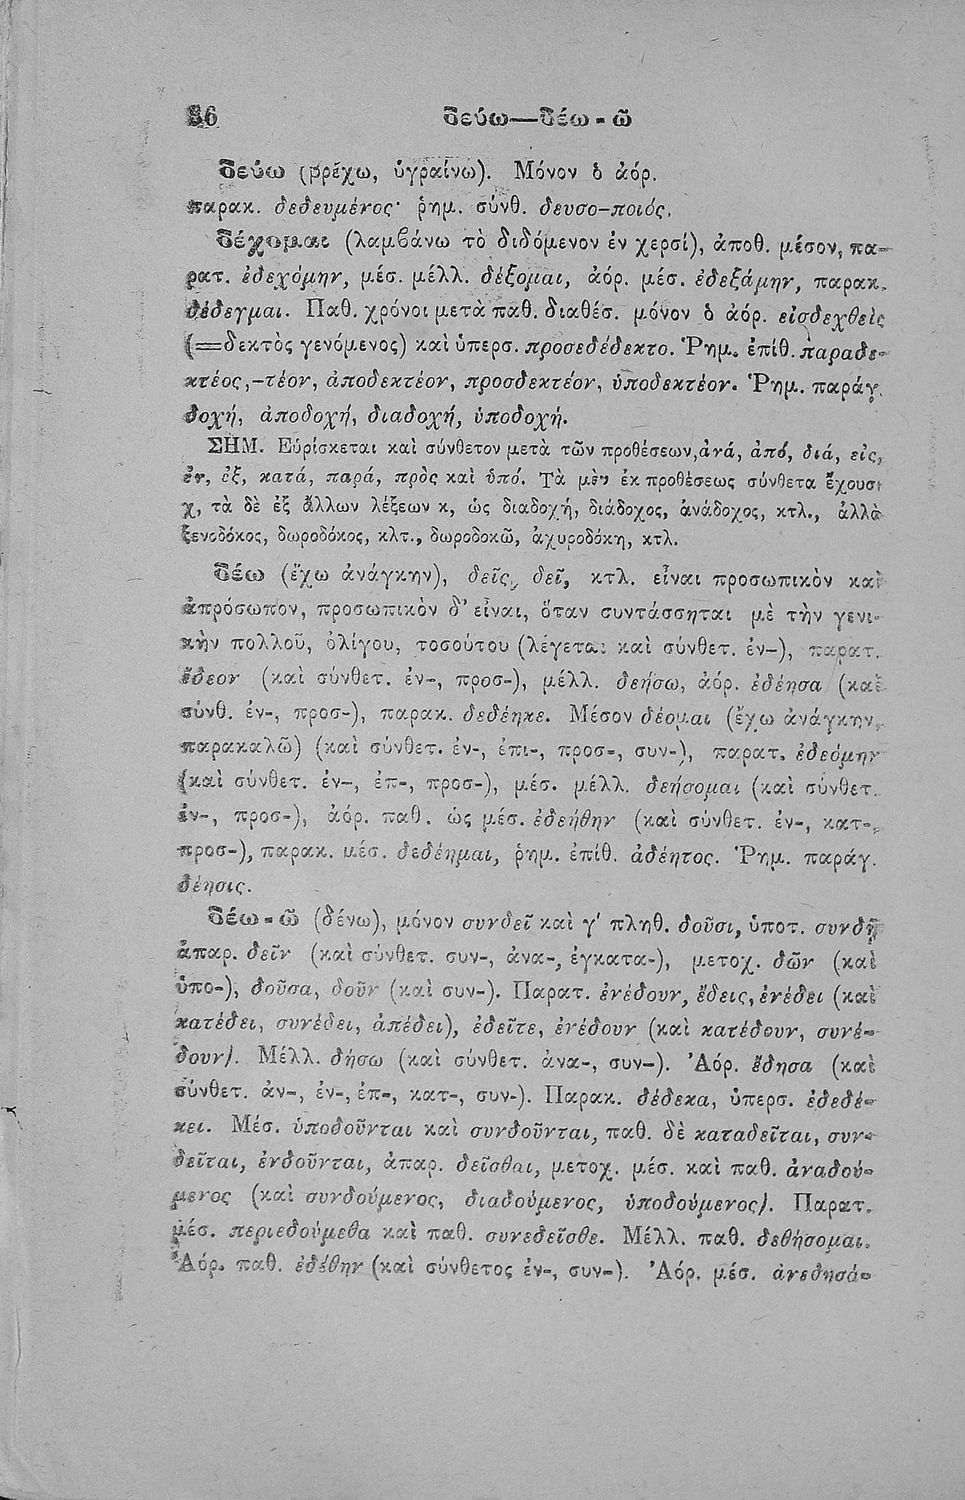 36 δεύω—δέω-ῶ
δεύω (βρέχω, ὑγραίνω). Μόνον ὁ ἀόρ.
παρακ. δεδευμένος· ῥημ. σύνθ. δευσο-ποιός.
δέχομαι (λαμβάνω τὸ διδόμενον ἐν χερσί), ἀποθ. μέσον, πα-
ρατ. ἐδεχόμην, μέσ. μέλλ. δέξομαι, ἀόρ. μέσ. ἐδεξάμην, παρακ.
δέδεγμαι. Παθ. χρόνοι μετὰ παθ. διαθέσ. μόνον ὁ ἀόρ. εἰσδεχθεὶς
(=δεκτὸς γενόμενος) καὶ ὑπερσ. προσεδέδεκτο. Ῥημ. ἐπίθ. παραδε-
κτέος,-τέον, ἀποδεκτέον, προσδεκτέον, ὑποδεκτέον. Ῥημ. παράγ.
δοχή, ἀποδοχή, διαδοχή, ὑποδοχή.
ΣΗΜ. Εὑρίσκεται καὶ σύνθετον μετὰ τῶν προθέσεων, ἀνά, ἀπό, διά, εἰς,
ἐν, ἐξ, κατά, παρά, πρὸς καὶ ὑπό. Τὰ μὲν ἐκ προθέσεως σύνθετα ἔχουσι
χ, τὰ δὲ ἐξ ἄλλων λέξεων κ, ὡς διαδοχή, διάδοχος, ἀνάδοχος, κτλ., ἀλλὰ
ξενοδόκος, δωροδόκος, κλτ., δωροδοκῶ, ἀχυροδόκη, κτλ.
δέω (ἔχω ἀνάγκην), δεῖς, δεῖ, κτλ. εἶναι προσωπικὸν καὶ
ἀπρόσωπον, προσωπικὸν δ' εἶναι, ὅταν συντάσσηται μὲ τὴν γενι-
κὴν πολλοῦ, ὀλίγου, τοσούτου (λέγεται καὶ σύνθετ. ἐν-), παρατ.
ἔδεον (καὶ σύνθετ. ἐν-, προσ-), μέλλ. δεήσω, ἀόρ. ἐδέησα (καὶ
σύνθ. ἐν-, προσ-), παρακ. δεδέηκε. Μέσον δέομαι (ἔχω ἀνάγκην,
παρακαλῶ) (καὶ σύνθετ. ἐν-, ἐπι-, προσ-, συν-), παρατ. ἐδεόμην
(καὶ σύνθετ. ἐν-, ἐπ-, προσ-), μέσ. μέλλ. δεήσομαι (καὶ σύνθετ.
ἐν-, προσ-), ἀόρ. παθ. ὡς μέσ. ἐδεήθην (καὶ σύνθετ. ἐν-, κατ-,
προσ-), παρακ. μέσ. δεδέημαι, ῥημ. ἐπίθ. ἀδέητος. Ῥημ. παράγ.
δέησις.
δέω-ῶ (δένω), μόνον συνδεῖ καὶ γ' πληθ. δοῦσι, ὑποτ. συνδῇ
ἀπαρ. δεῖν (καὶ σύνθετ. συν-, ἀνα-, ἐγκατα-), μετοχ. δῶν (καὶ
ὑπο-), δοῦσα, δοῦν (καὶ συν-). Παρατ. ἐνέδουν, ἔδεις, ἐνέδει (καὶ
κατέδει, συνέδει, ἀπέδει), ἐδεῖτε, ἐνέδουν (καὶ κατέδουν, συνέ-
δουν). Μέλλ. δήσω (καὶ σύνθετ. ἀνα-, συν-). Ἀόρ. ἔδησα (καὶ
σύνθετ. ἀν-, ἐν-, ἐπ-, κατ-, συν-). Παρακ. δέδεκα, ὑπερσ. ἐδεδέ-
κει. Μέσ. ὑποδοῦνται καὶ συνδοῦνται, παθ. δὲ καταδεῖται, συν-
δεῖται, ἐνδοῦνται, ἀπαρ. δεῖσθαι, μετοχ. μέσ. καὶ παθ. ἀναδού-
μενος (καὶ συνδούμενος, διαδούμενος, ὑποδούμενος). Παρατ.
μέσ. περιεδούμεθα καὶ παθ. συνεδεῖσθε. Μέλλ. παθ. δεθήσομαι.
Ἀόρ. παθ. ἐδέθην (καὶ σύνθετος ἐν-, συν-). Ἀόρ. μέσ. ἀνεδησά-